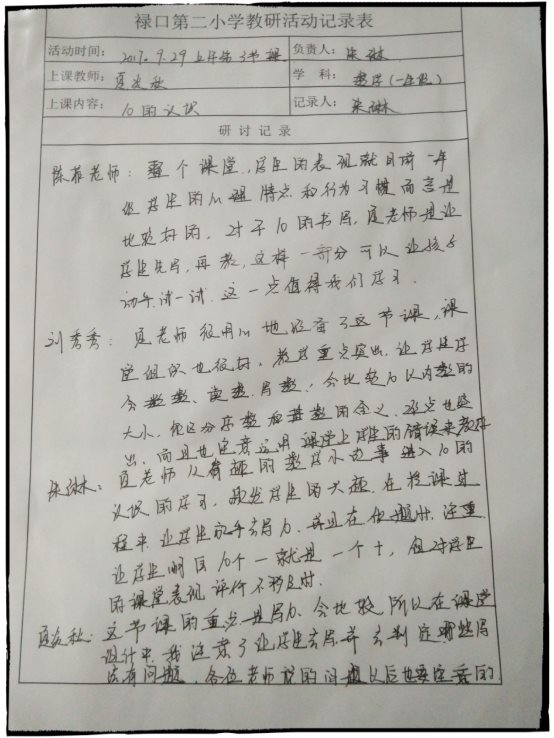 禄口第二小学教研活动记录表
活动时间： 2017.9.29 上午第3节课 负责人： 朱琳
上课教师： 夏友秋 学 科： 数学（一年级）
上课内容： 10的认识 记录人： 朱琳
研 讨 记 录
陈菲老师：整个课堂，学生的表现就目前一年
级学生的心理特点和行为习惯而言是
比较好的，对于10的书写，夏老师是让
学生先写，再教，这样一部分可以让孩子
动手试一试，这一点值得我们学习．
刘秀秀：夏老师很用心地准备了这节课，课
堂组织也很好，教学重点突出，让学生学
会数数、读数、写数，会比较10以内数的
大小，能区分序数和基数的含义，难点也突
出，而且也注意运用课堂上学生的错误来教学
朱琳：夏老师从有趣的数学小故事进入10的
认识的学习，激发学生的兴趣，在授课过
程中，让学生动手去写10，并且在做题时，注重
让学生明白10个一就是一个十，但对学生
的课堂表现评价不够及时．
夏友秋：这节课的重点是写10，会比较，所以在课堂
设计中，我注意了让学生去写并去判定哪些写
法有问题，各位老师说的问题以后也要注意的